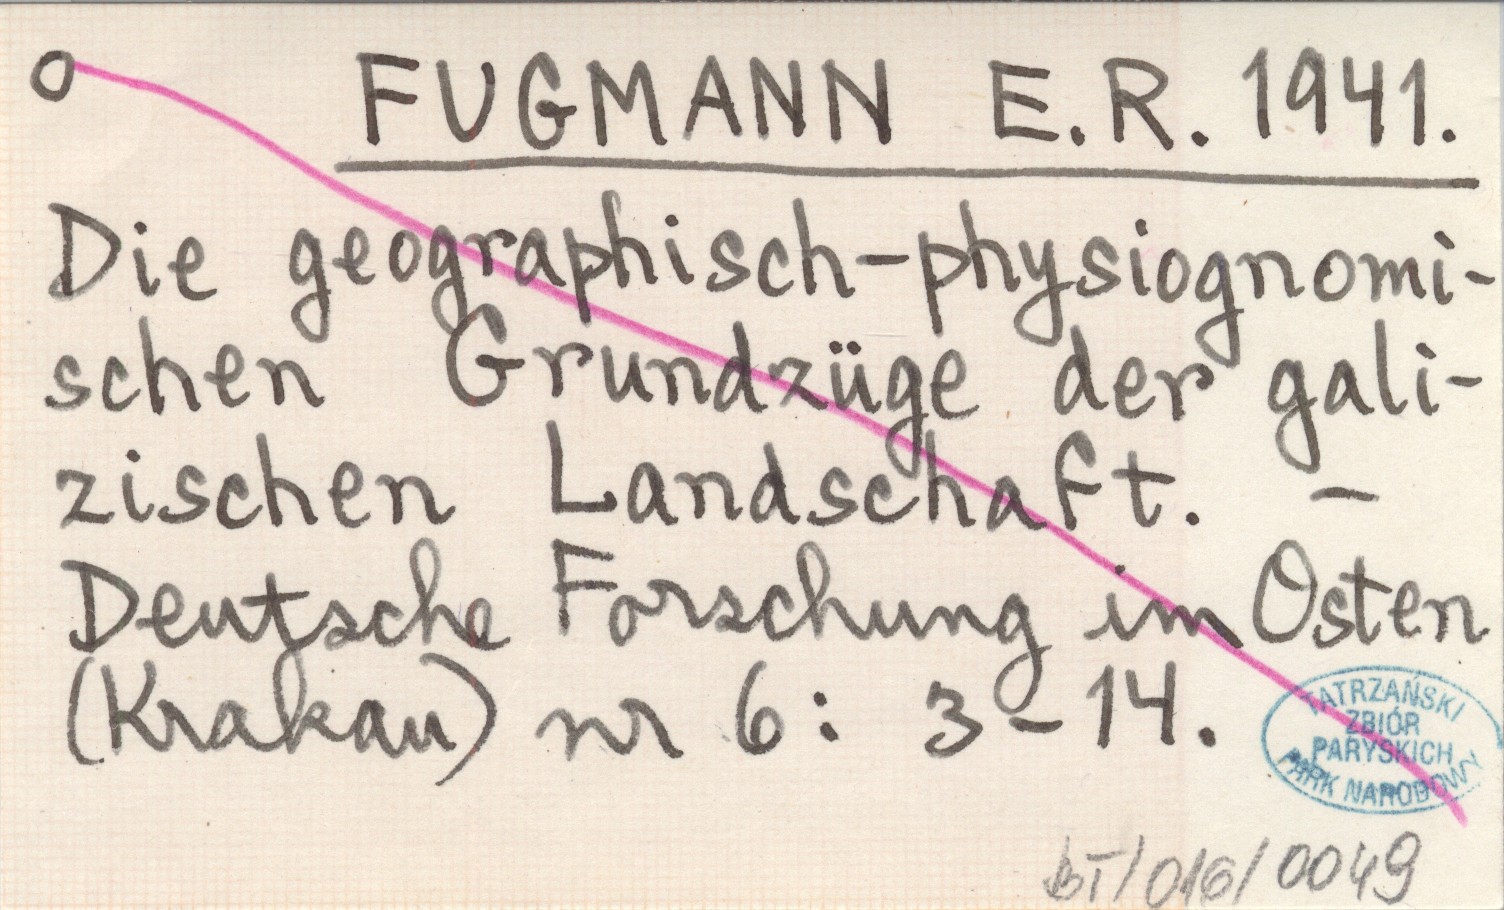 o FUGMANN E.R. 1941.
Die geographisch-physiognomi-
schen Grundzüge der gali-
zischen Landschaft. -
Deutsche Forschung im Osten
(Krakau) nr 6: 3-14.
TATRZAŃSKI
ZBIÓR
PARYSKICH
PARK NARODOWY
BT/016/0049